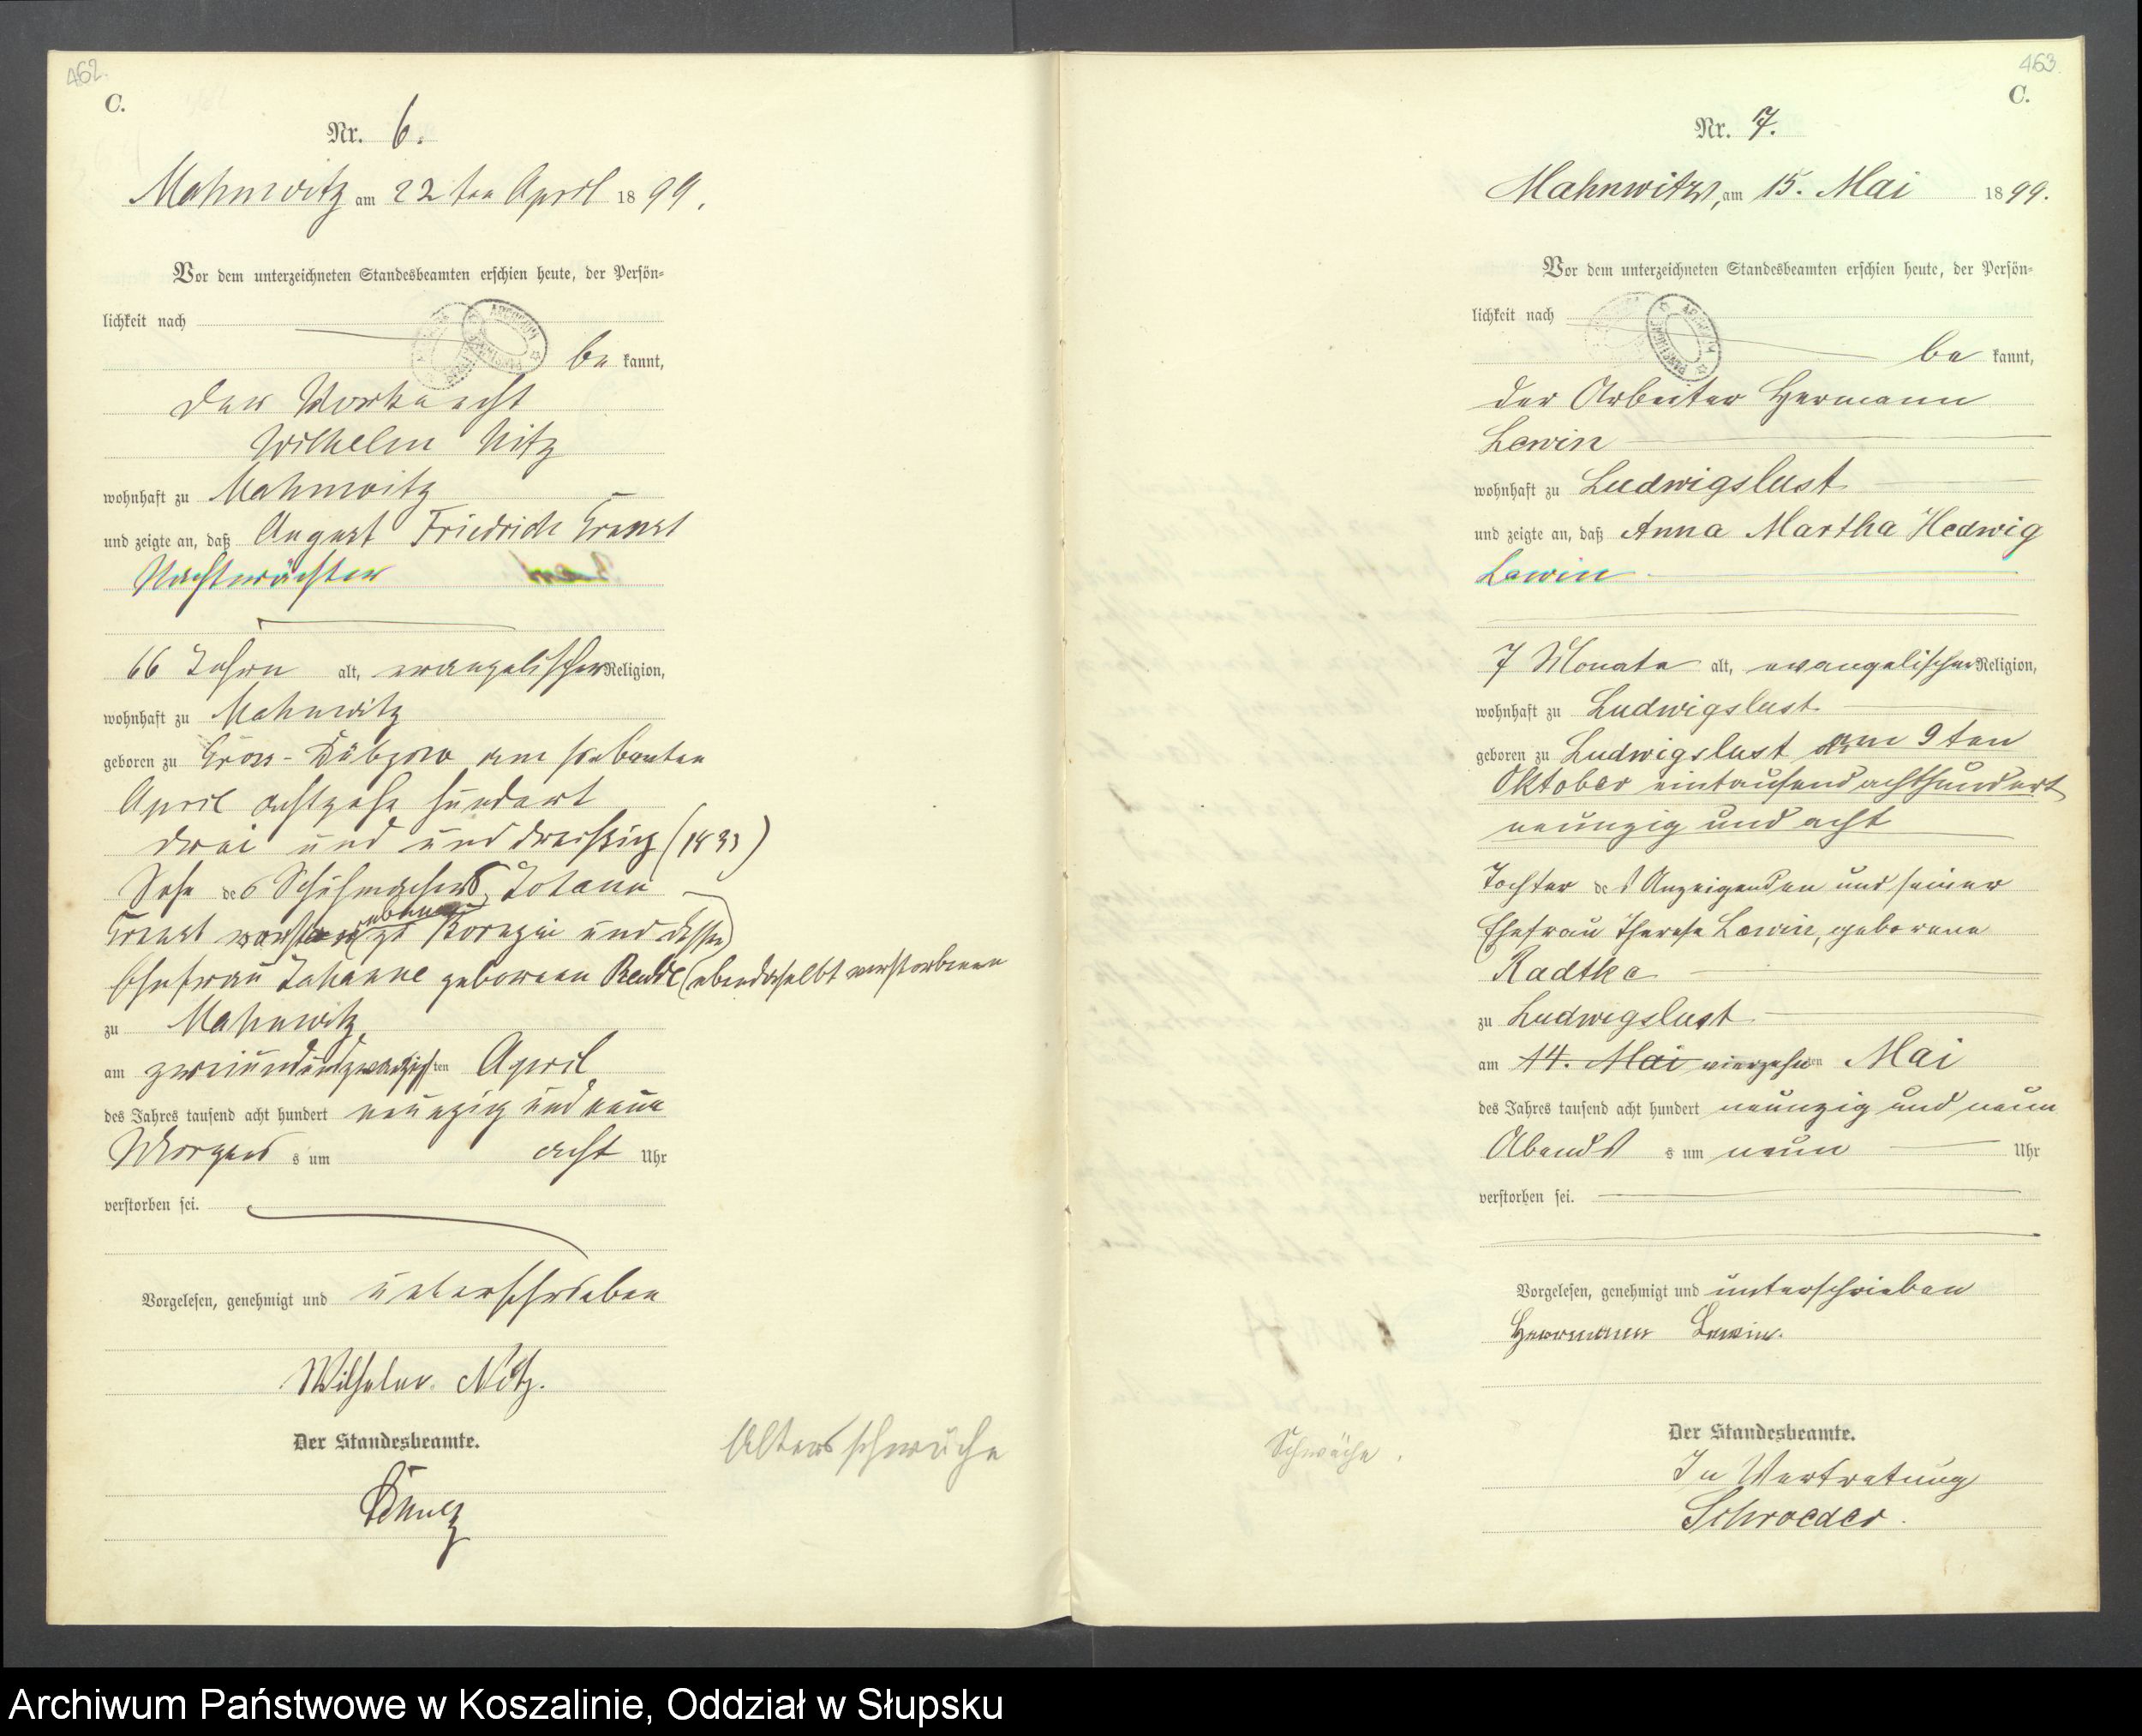 462.
C.
Nr. 6.
Mahnwitz am 22ten April 1899.
Vor dem unterzeichneten Standesbeamten erschien heute, der Persön-
lichkeit nach
be kannt,
der Vorknecht
Wilhelm Nitz
wohnhaft zu Mahnwitz
und zeigte an, daß August Friedrich
Nachtwächter
66 Jahre alt, evangelischer Religion,
wohnhaft zu Mahnwitz
geboren zu Gross-Dübzow am siebenten
April achtzehn hundert
drei und und dreissig (1833)
Sohn des Schuhmachers Johann
zu und
Ehefrau Johanne geborene (ebendaselbst verstorbenen
zu Mahnwitz
am zweiundundzwanzigsten April
des Jahres tausend acht hundert neunzig und neun
Morgens um acht Uhr
verstorben sei.
Vorgelesen, genehmigt und unterschrieben
Wilhelm Nitz.
Der Standesbeamte.
Altersschwäche
463.
C.
Nr. 7.
Mahnwitz, am 15. Mai 1899.
Vor dem unterzeichneten Standesbeamten erschien heute, der Persön-
lichkeit nach
be kannt,
der Arbeiter Hermann
Lewin
wohnhaft zu Ludwigslust
und zeigte an, daß Anna Martha Hedwig
Lewin
7 Monate alt, evangelischer Religion,
wohnhaft zu Ludwigslust
geboren zu Ludwigslust am 9ten
Oktober eintausend achthundert
neunzig und acht
Tochter des Anzeigenden und seiner
Ehefrau Therese Lewin, geborene
Radtke
zu Ludwigslust
am 14. Mai vierzehnten Mai
des Jahres tausend acht hundert neunzig und neun
Abends um neun Uhr
verstorben sei.
Vorgelesen, genehmigt und unterschrieben
Herrmann Lewin.
Der Standesbeamte.
Schwäche.
In Vertretung
Schroeder.
Archiwum Państwowe w Koszalinie, Oddział w Słupsku